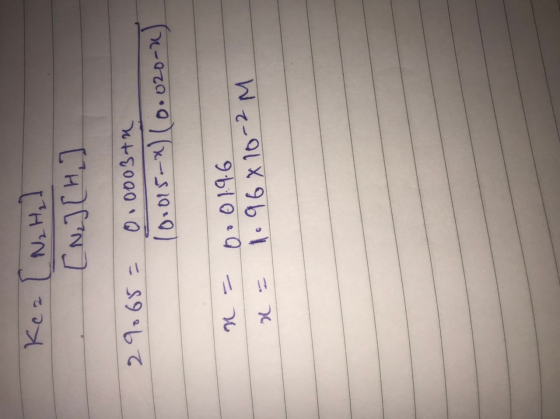 Kc = [N₂H₂]
[N₂][H₂]
29.65 = 0.0003+x
(0.015-x)(0.020-x)
x = 0.0196
x = 1.96 × 10⁻² M